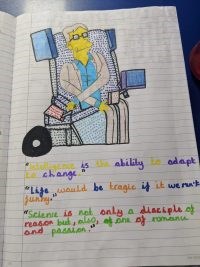 "Intelligence is the ability to adapt
to change."
"Life would be tragic if it weren't
funny."
"Science is not only a disciple of
reason but, also, of one of romanc
and passion."